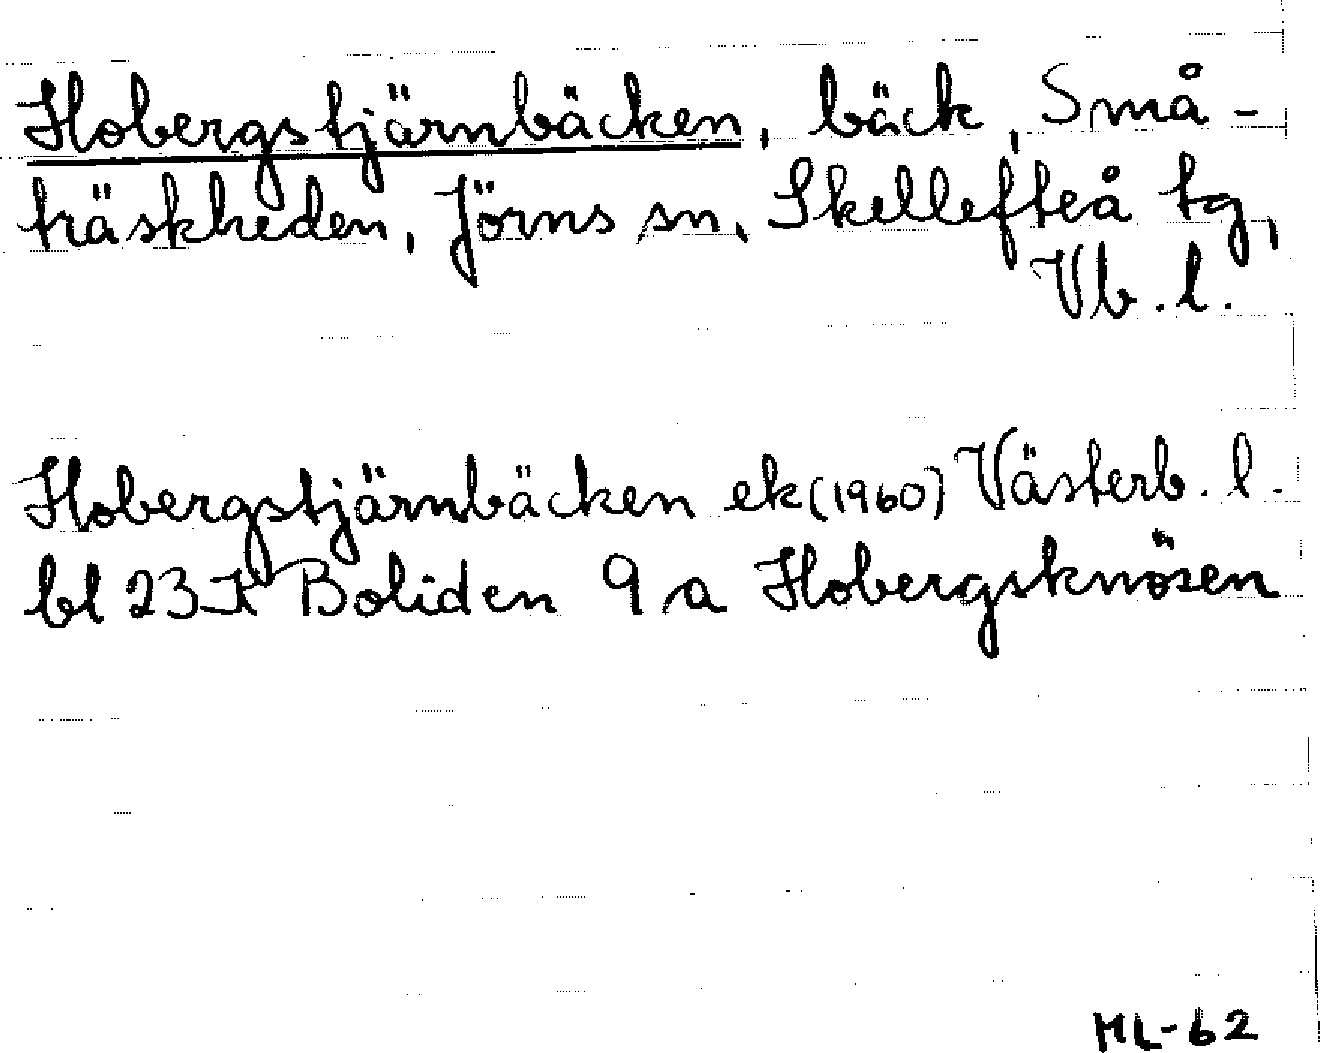 Hobergstjärnbäcken, bäck, Små-
träskheden, Jörns sn, Skellefteå tg,
Vb. l.
Hobergstjärnbäcken ek (1960) Västerb. l.
bl 23K Boliden 9 a Hobergsknösen
ML-62